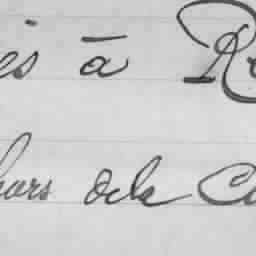 és à R
hors de la C